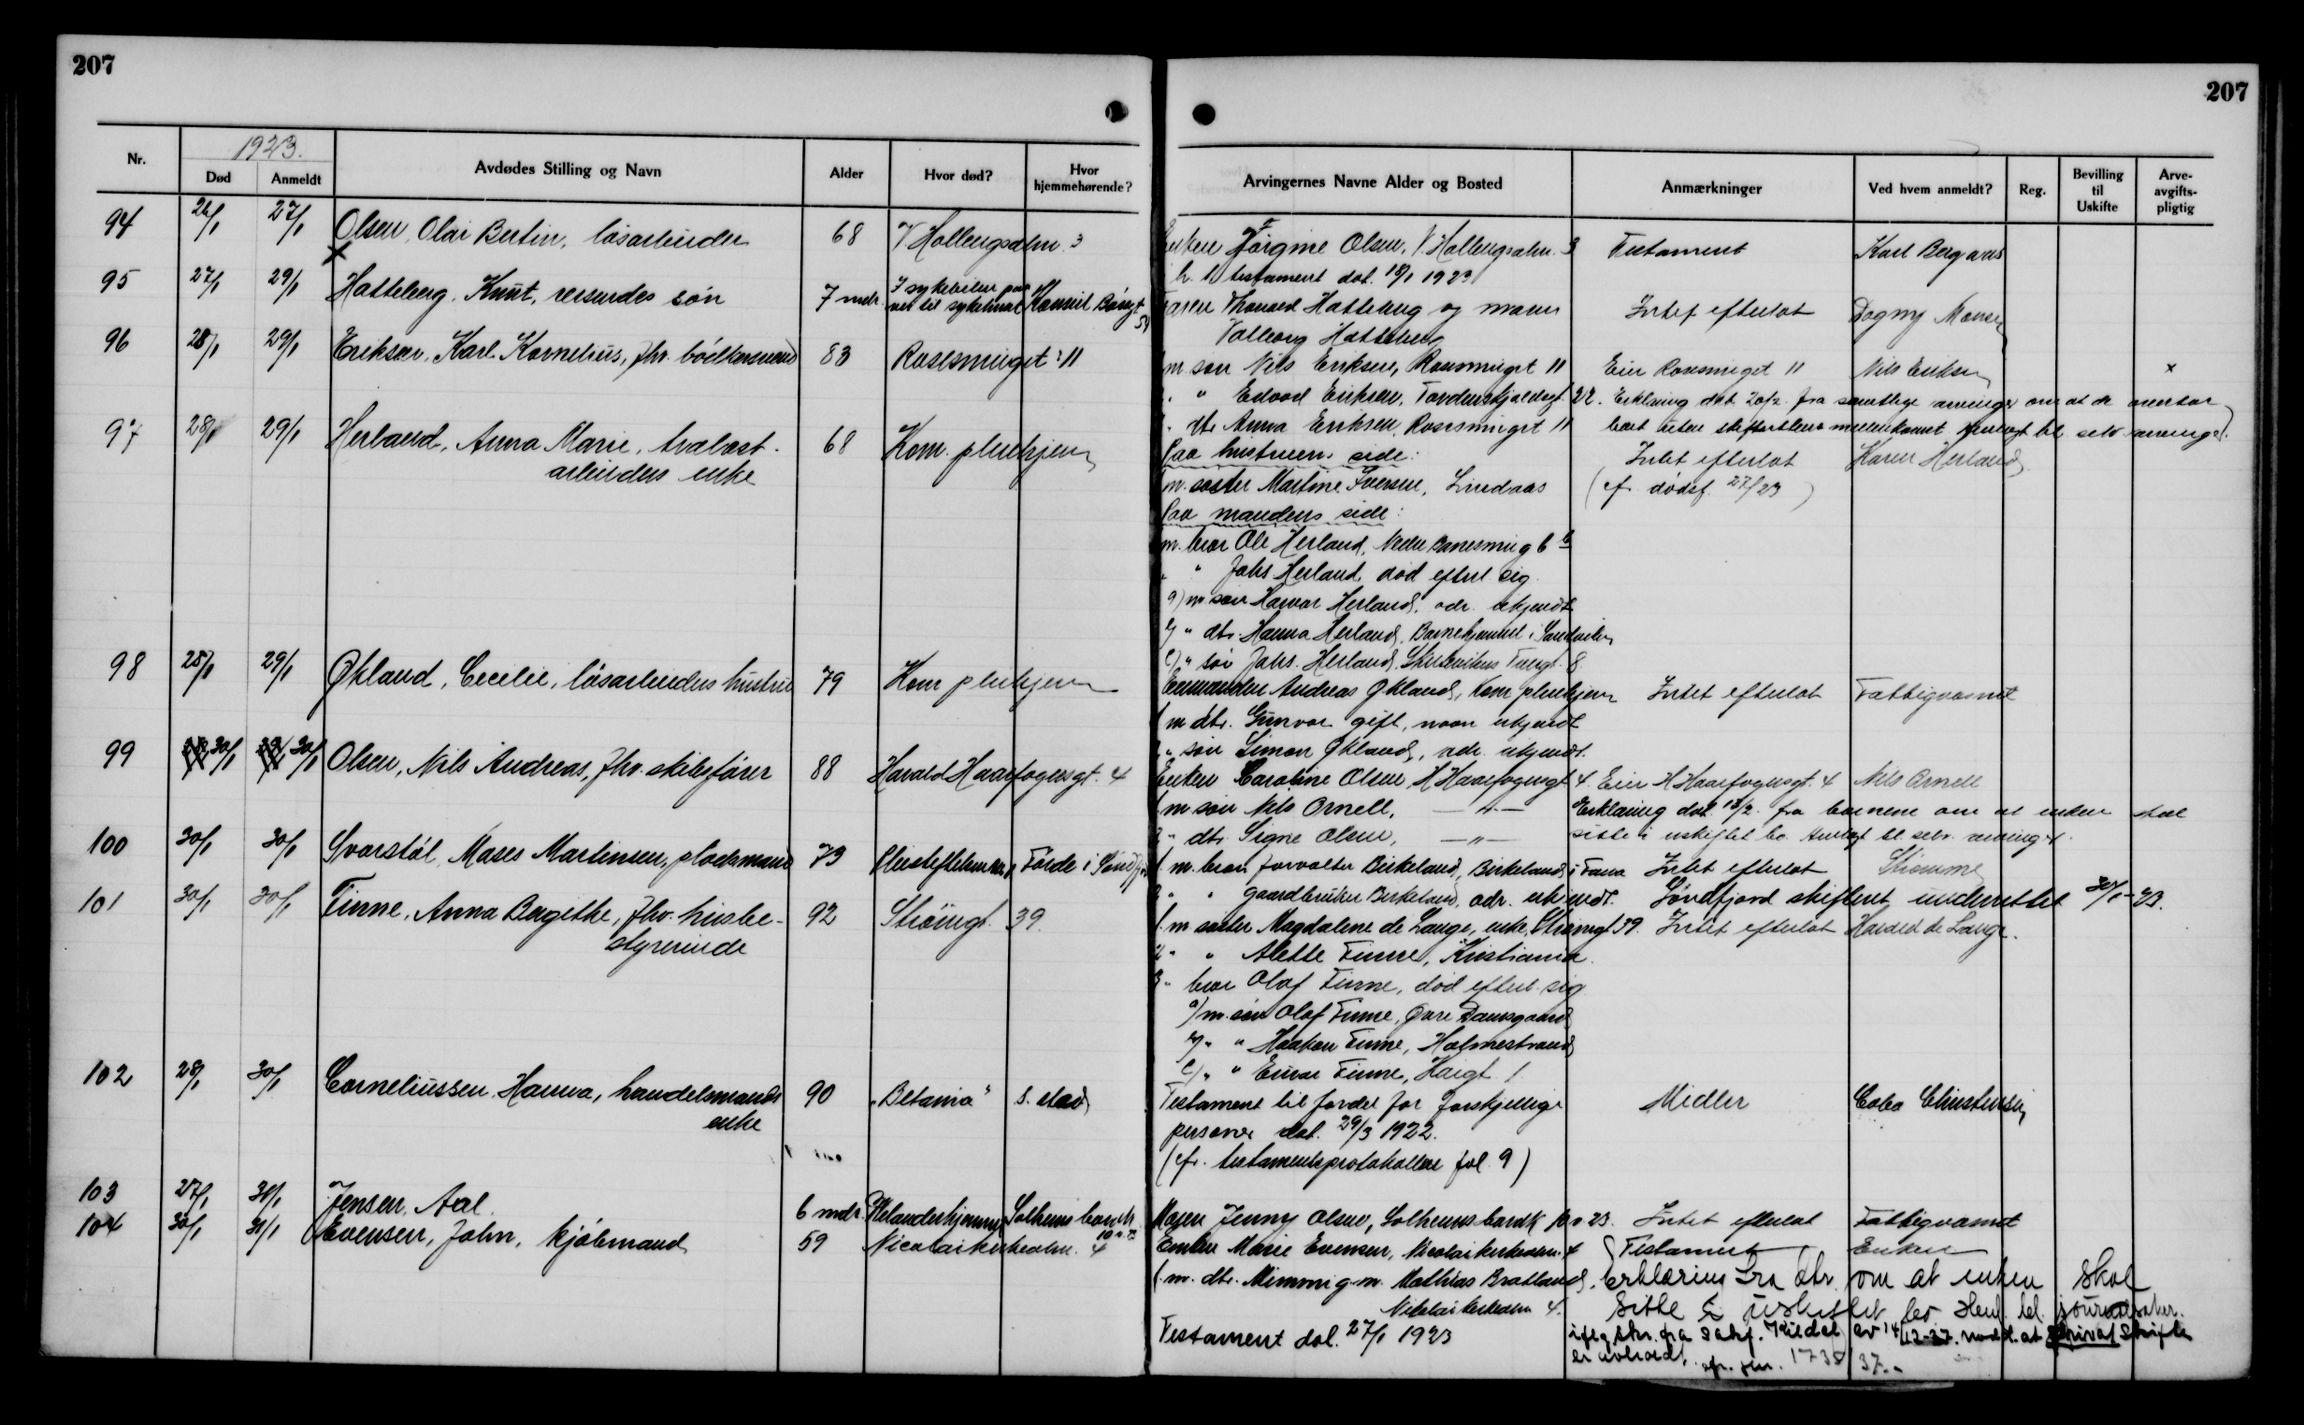 207
207
1923.
Nr. Død Anmeldt Avdødes Stilling og Navn Alder Hvor død? Hvor hjemmehørende? Arvingernes Navne Alder og Bosted Anmærkninger Ved hvem anmeldt? Reg. Bevilling til Uskifte Arveavgiftspligtig
94 26/1 27/1 Olsen, Olai Bertin, løsarbeider 68 V Hollengsalm. 3 Enken Jørgine Olsen, V. Hollengsalm. 3 Testament Karl Bergaas
testament dat. 18/1 1923
95 27/1 29/1 Hatteberg, Knut, reisendes søn 7 mdr. I sykebilen paa vei til sykehuset Hatteberg og moren Intet efterlat Dagny Monsen
Valborg Hatteberg
96 28/1 29/1 Eriksen, Karl Kornelius, fhv. bødkersvend 83 Rosesmuget 11 1 m. søn Nils Eriksen, Rosesmuget 11 Eier Rosesmuget 11 Nils Eriksen x
2 " " Edvard Eriksen, Tordenskjoldsgt. 22. Erklæring dat. 20/2. fra samtlige arvinger om at de overtar
3 " dtr. Anna Eriksen, Rosesmuget 11 boet uten skifterettens mellemkomst henlagt til selv arvinger.
97 28/1 29/1 Herland, Anna Marie, travlastarbeiders enke 68 Kom. pleiehjem Paa hustruens side: Intet efterlat Karen Herland
1 m. søster Martine Iversen, Lindaas (cfr. dødsf. 27/23)
Paa mandens side:
1 m. bror Ole Herland, Nedre 6 b
2 " " Johs Herland, død efterl. sig
a) m. søn Harvar Herland, adr. ukjendt
b) " dtr. Hanna Herland, Barnehjemmet i Sandviken
c) " søn Johs. Herland, 8
98 25/1 29/1 Økland, Cecilie, løsarbeiders hustru 79 Kom pleiehjem Enkemanden Andreas Økland, Kom pleiehjem Intet efterlat Fattigvæsnet
1 m dtr. Gunvor gift, navn ukjendt
2 " søn Simon Økland, adr. ukjendt.
99 30/1 30/1 Olsen, Nils Andreas, fhv. skibsfører 88 Harald Haarfagersgt. 4 Enken Caroline Olsen, H Haarfagersgt 4. Eier H Haarfagersgt. 4 Nils Ornell
1 m søn Nils Ornell, — " — Erklæring dat 12/2. fra barnene om at enken skal
2 " dtr. Signe Olsen, — " — sitte i uskiftet bo. henlagt til selv arvinger.
100 30/1 30/1 Svarstøl, Moses Martinsen, pladsmand 73 Førde i Søndfj. 1 m. bror forvalter Birkeland, Birkeland i Fana Intet efterlat Strømme
2 " " gaardbruker Birkeland, adr. ukjendt. Søndfjord skifteret underrettet 30/1-23.
101 30/1 30/1 Finne, Anna Bagithe, fhv. husbestyrerinde 92 Strømgt. 39. 1 m søster Magdalene de Lange, enke, Strømgt 39. Intet efterlat Harald de Lange.
2 " " Alette Finne, Kristiania.
3 " bror Olaf Finne, død efterl. sig
a) m. søn Olaf Finne, Øvre Damsgaard
b) " " Haakon Finne, Holmestrand
c) " " Einar Finne, Haugt 1.
102 28/1 30/1 Corneliussen, Hanna, handelsmands enke 90 "Betania" s. sted Testament til fordel for forskjellige Midler Christensen
personer dat. 29/3 1922.
(cfr. testamentsprotokollen fol. 9)
103 27/1 31/1 Jensen, Aal. 6 mdr. Solheims Moren Jenny Olsen, 10 v 23. Intet efterlat Fattigvæsnet
104 30/1 31/1 Evensen, John, kjøbmand 59 Nicolaikirkealm. 4 Enken Marie Evensen, Nicolaikirkealm. 4 Testament Enken
1. m. dtr. Mimmi g. m. Mathias Bratland, Erklæring fra dtr. om at enken skal
Nikolaikirkealm 4. sitte i uskiftet bo Henl. til journalsaker.
Testament dat. 27/1 1923 iflg skr. fra sakf. Kildal av 14/12-37. medd. at privat skifte
er avholdt. cfr. jnr. 1738/37.-